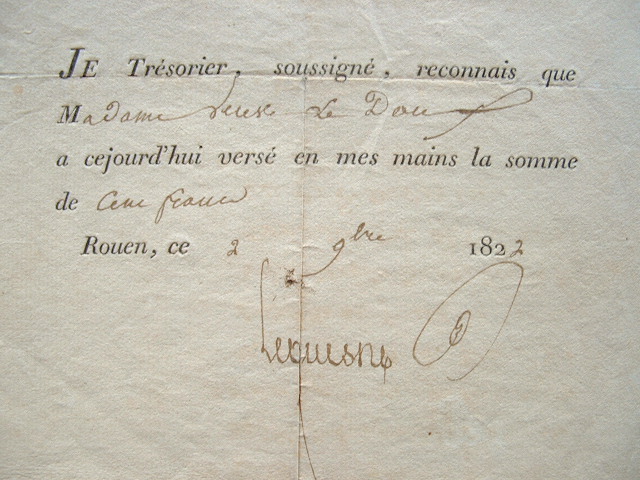 JE Trésorier, soussigné, reconnais que
Madame veuve Le Dou
a cejourd'hui versé en mes mains la somme
de Cent francs
Rouen, ce 2 9bre 1822
Lequesne